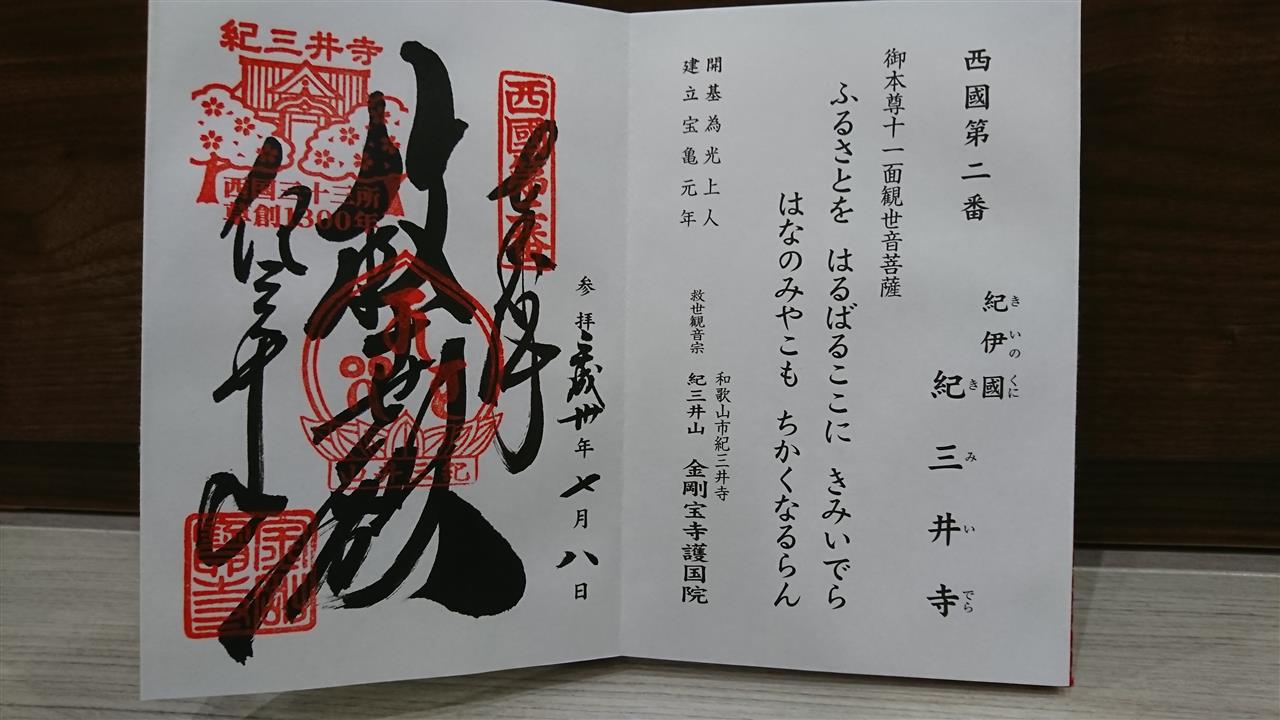 西國第二番
紀伊國
きいのくに
紀三井寺
きみいでら
御本尊十一面観世音菩薩
ふるさとを はるばるここに きみいでら
はなのみやこも ちかくなるらん
開基為光上人
建立宝亀元年
和歌山市紀三井寺
救世観音宗 紀三井山 金剛宝寺護国院
参拝 平成卅年七月八日
西國第二番
奉拝
救世殿
紀三井山
紀三井寺
西国三十三所
草創1300年
紀三井寺